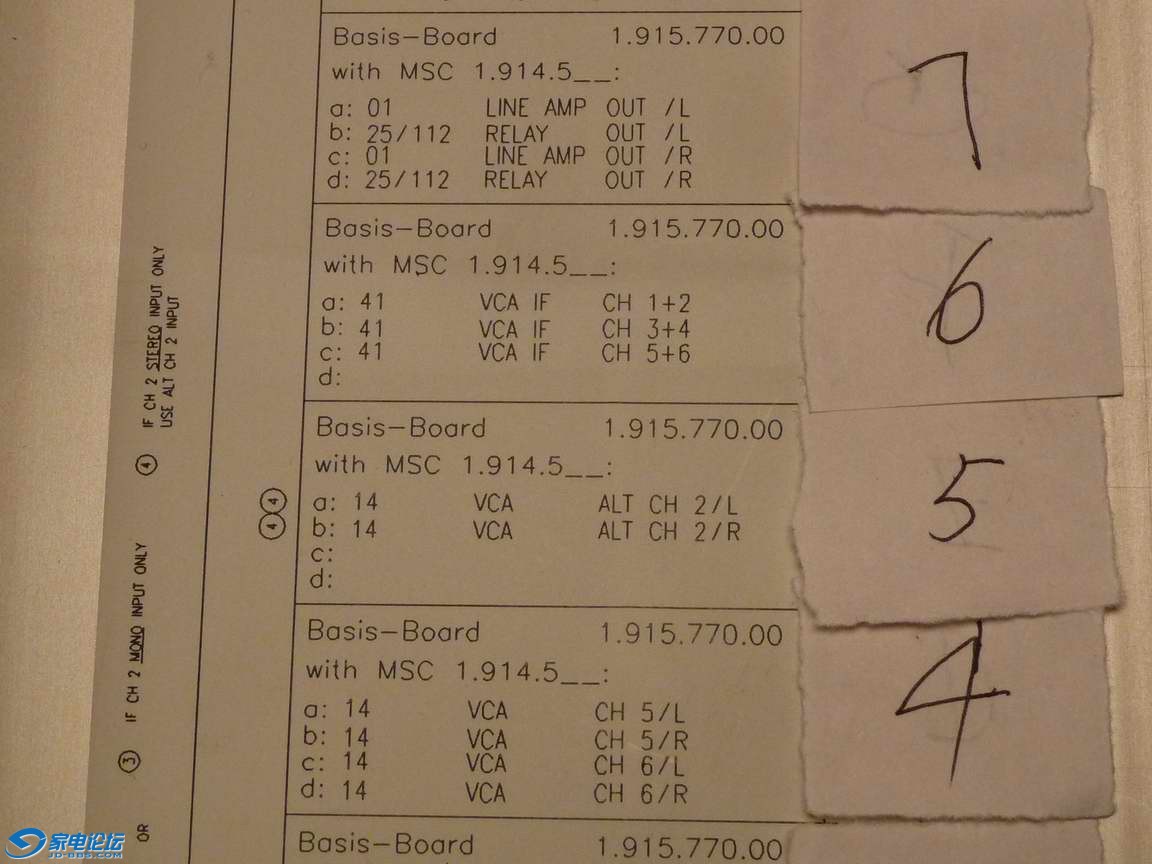 Basis-Board 1.915.770.00 7
with MSC 1.914.5__:
a: 01 LINE AMP OUT /L
b: 25/112 RELAY OUT /L
c: 01 LINE AMP OUT /R
d: 25/112 RELAY OUT /R
Basis-Board 1.915.770.00 6
with MSC 1.914.5__:
a: 41 VCA IF CH 1+2
b: 41 VCA IF CH 3+4
c: 41 VCA IF CH 5+6
d:
Basis-Board 1.915.770.00 5
with MSC 1.914.5__:
④ a: 14 VCA ALT CH 2/L
④ b: 14 VCA ALT CH 2/R
c:
d:
Basis-Board 1.915.770.00 4
with MSC 1.914.5__:
a: 14 VCA CH 5/L
b: 14 VCA CH 5/R
c: 14 VCA CH 6/L
d: 14 VCA CH 6/R
Basis-Board 1.915.770.00
OR ③ IF CH 2 MONO INPUT ONLY ④ IF CH 2 STEREO INPUT ONLY
USE ALT CH 2 INPUT
家电论坛
JD-BBS.COM